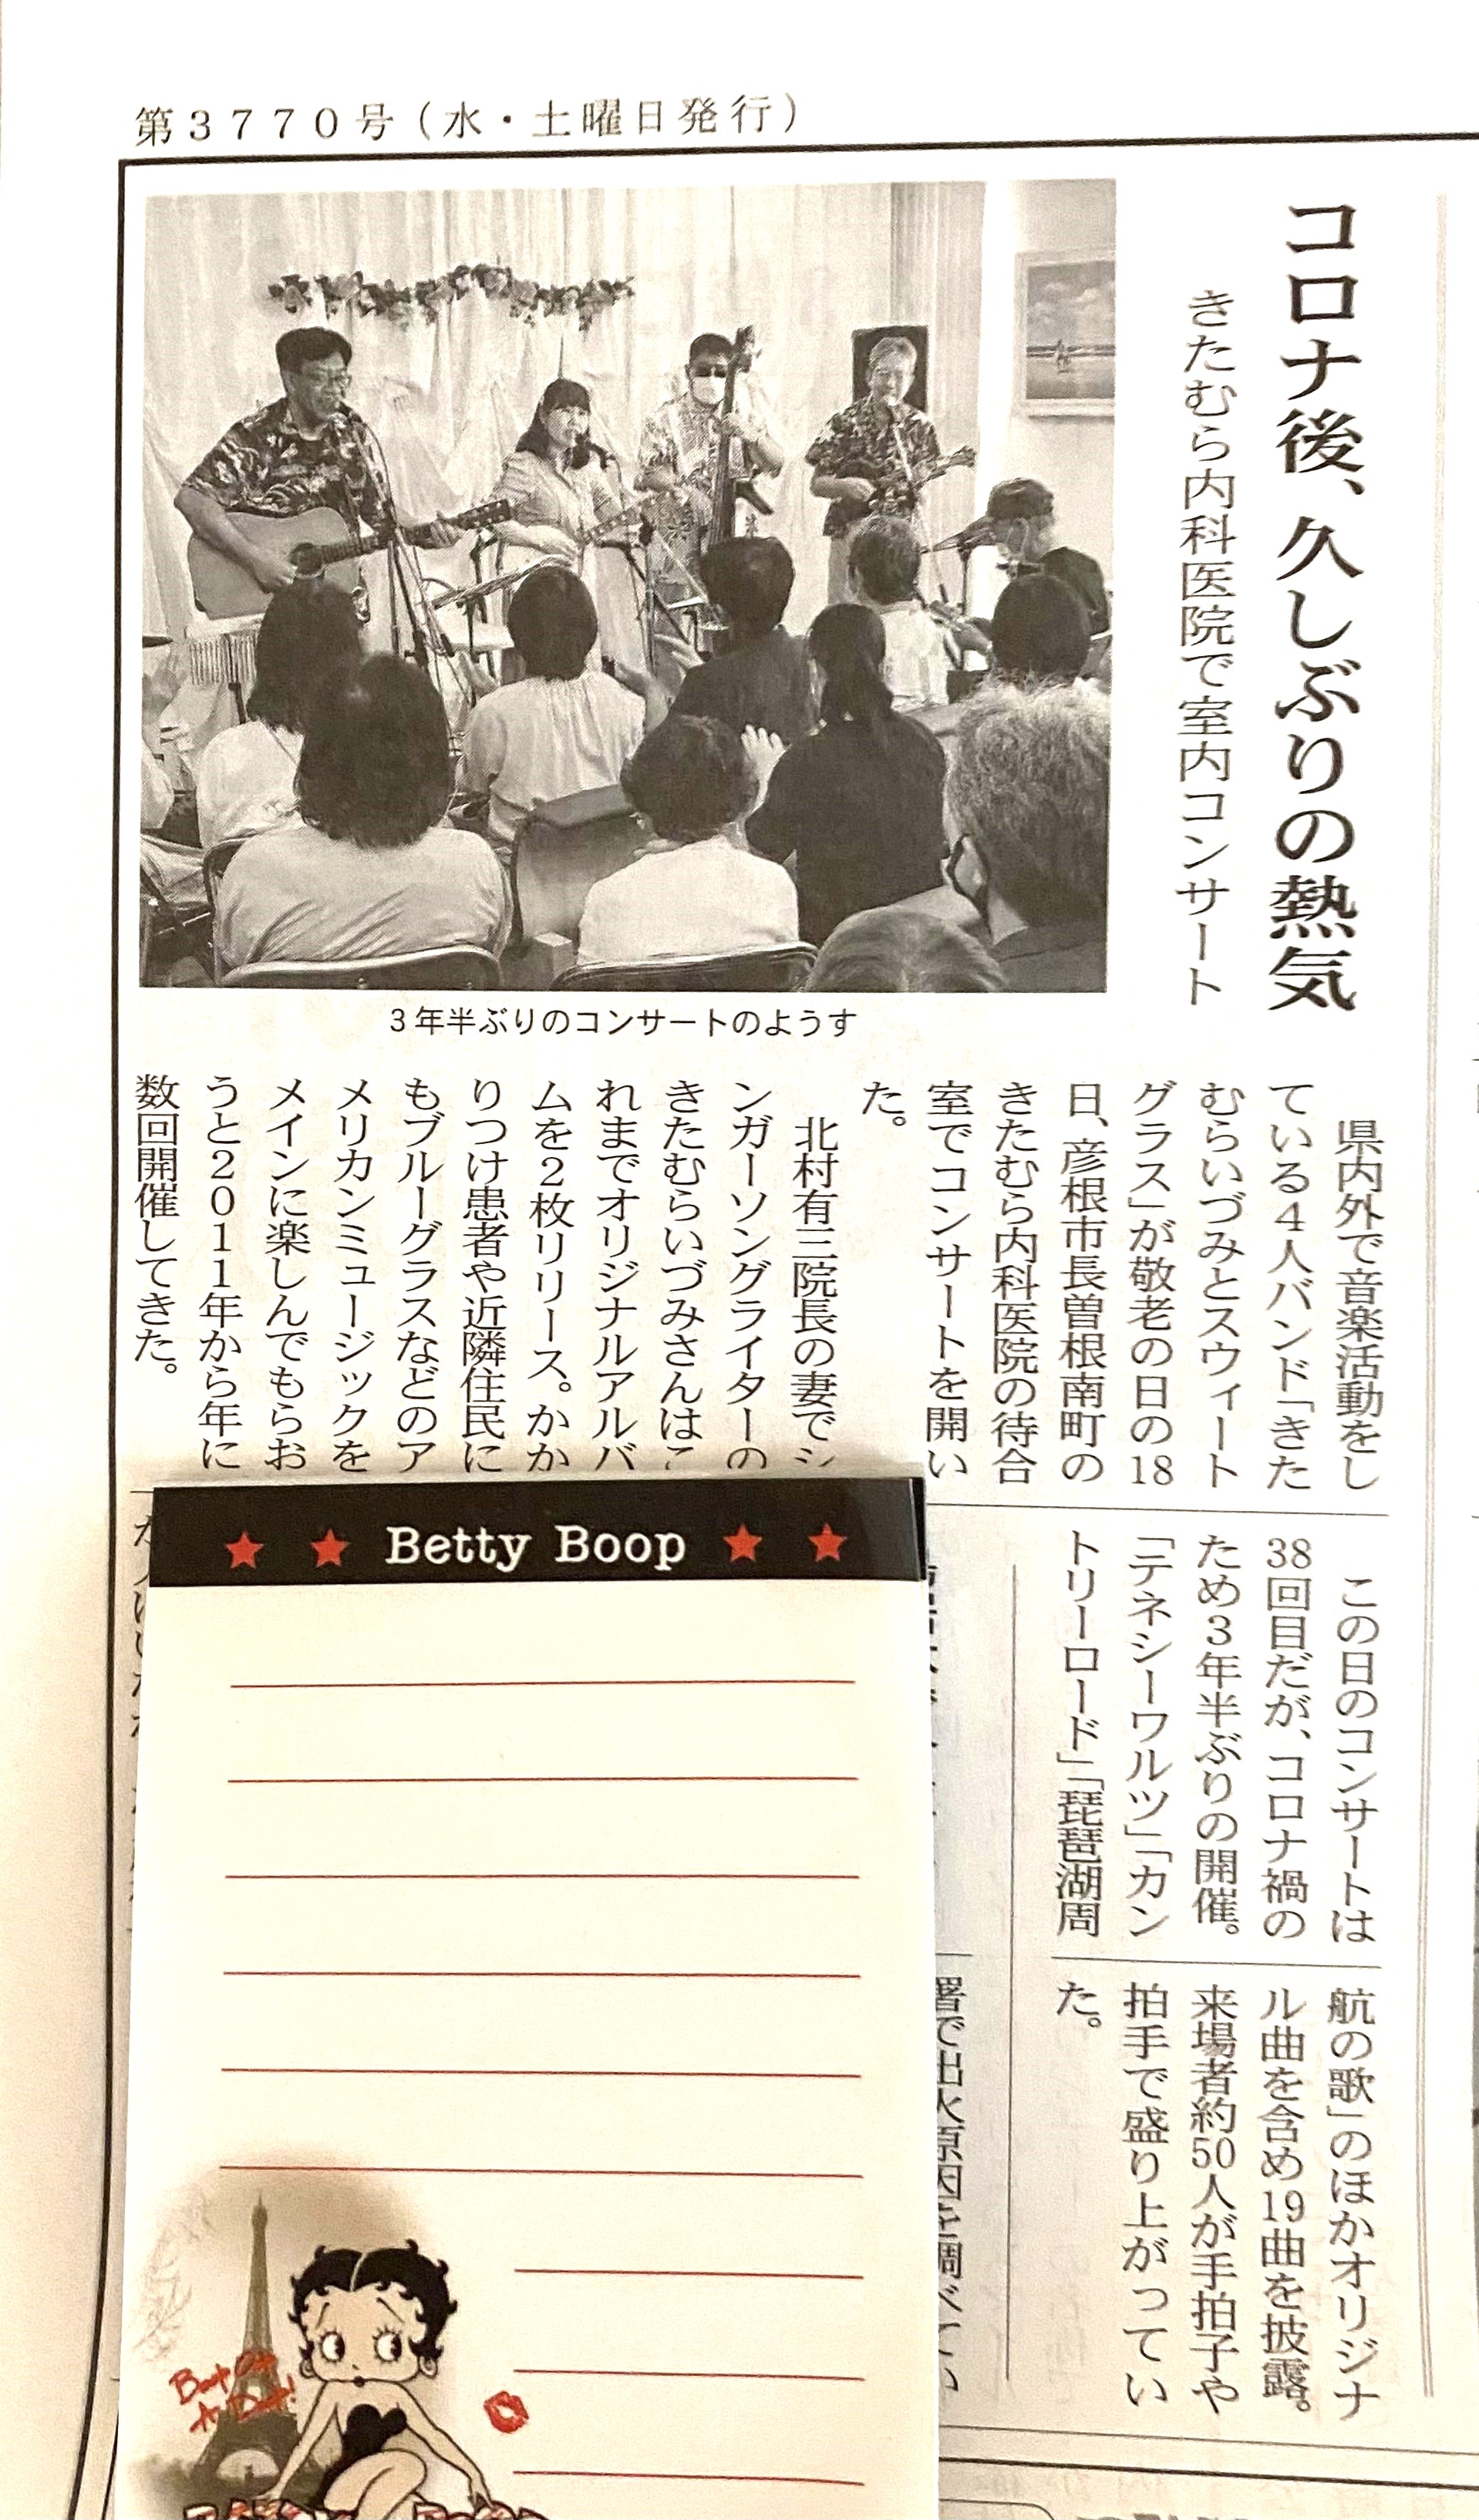 第3770号(水・土曜日発行)
コロナ後、久しぶりの熱気
きたむら内科医院で室内コンサート
3年半ぶりのコンサートのようす
県内外で音楽活動をし
ている4人バンド「きた
むらいづみとスウィート
グラス」が敬老の日の18
日、彦根市長曽根南町の
きたむら内科医院の待合
室でコンサートを開い
た。
北村有三院長の妻でシ
ンガーソングライターの
きたむらいづみさんはこ
れまでオリジナルアルバ
ムを2枚リリース。かか
りつけ患者や近隣住民に
もブルーグラスなどのア
メリカンミュージックを
メインに楽しんでもらお
うと2011年から年に
数回開催してきた。
この日のコンサートは
38回目だが、コロナ禍の
ため3年半ぶりの開催。
「テネシーワルツ」「カン
トリーロード」「琵琶湖周
航の歌」のほかオリジナ
ル曲を含め19曲を披露。
来場者約50人が手拍子や
拍手で盛り上がってい
た。
署で出火原因を調べてい
Betty Boop